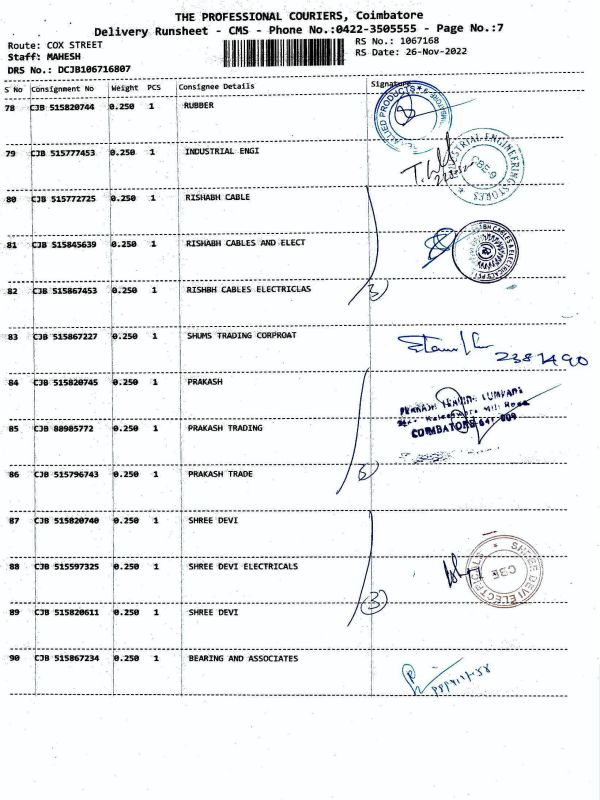 THE PROFESSIONAL COURIERS, Coimbatore
Delivery Runsheet - CMS - Phone No.:0422-3505555 - Page No.:7
Route: COX STREET
RS No.: 1067168
Staff: MAHESH
RS Date: 26-Nov-2022
DRS No.: DCJB106716807
S No Consignment No Weight PCS Consignee Details Signature
78 CJB 515820744 0.250 1 RUBBER
79 CJB 515777453 0.250 1 INDUSTRIAL ENGI
INDUSTRIAL ENGINEERING STORES
CBE-9
80 CJB 515772725 0.250 1 RISHABH CABLE
81 CJB 515845639 0.250 1 RISHABH CABLES AND ELECT
82 CJB 515867453 0.250 1 RISHBH CABLES ELECTRICLAS
3
83 CJB 515867227 0.250 1 SHUMS TRADING CORPROAT
2381490
84 CJB 515820745 0.250 1 PRAKASH
COIMBATORE-641 009
85 CJB 88985772 0.250 1 PRAKASH TRADING
86 CJB 515796743 0.250 1 PRAKASH TRADE
87 CJB 515820740 0.250 1 SHREE DEVI
88 CJB 515597325 0.250 1 SHREE DEVI ELECTRICALS
SHREE DEVI ELECTRICALS
CBE
89 CJB 515820611 0.250 1 SHREE DEVI
3
90 CJB 515867234 0.250 1 BEARING AND ASSOCIATES